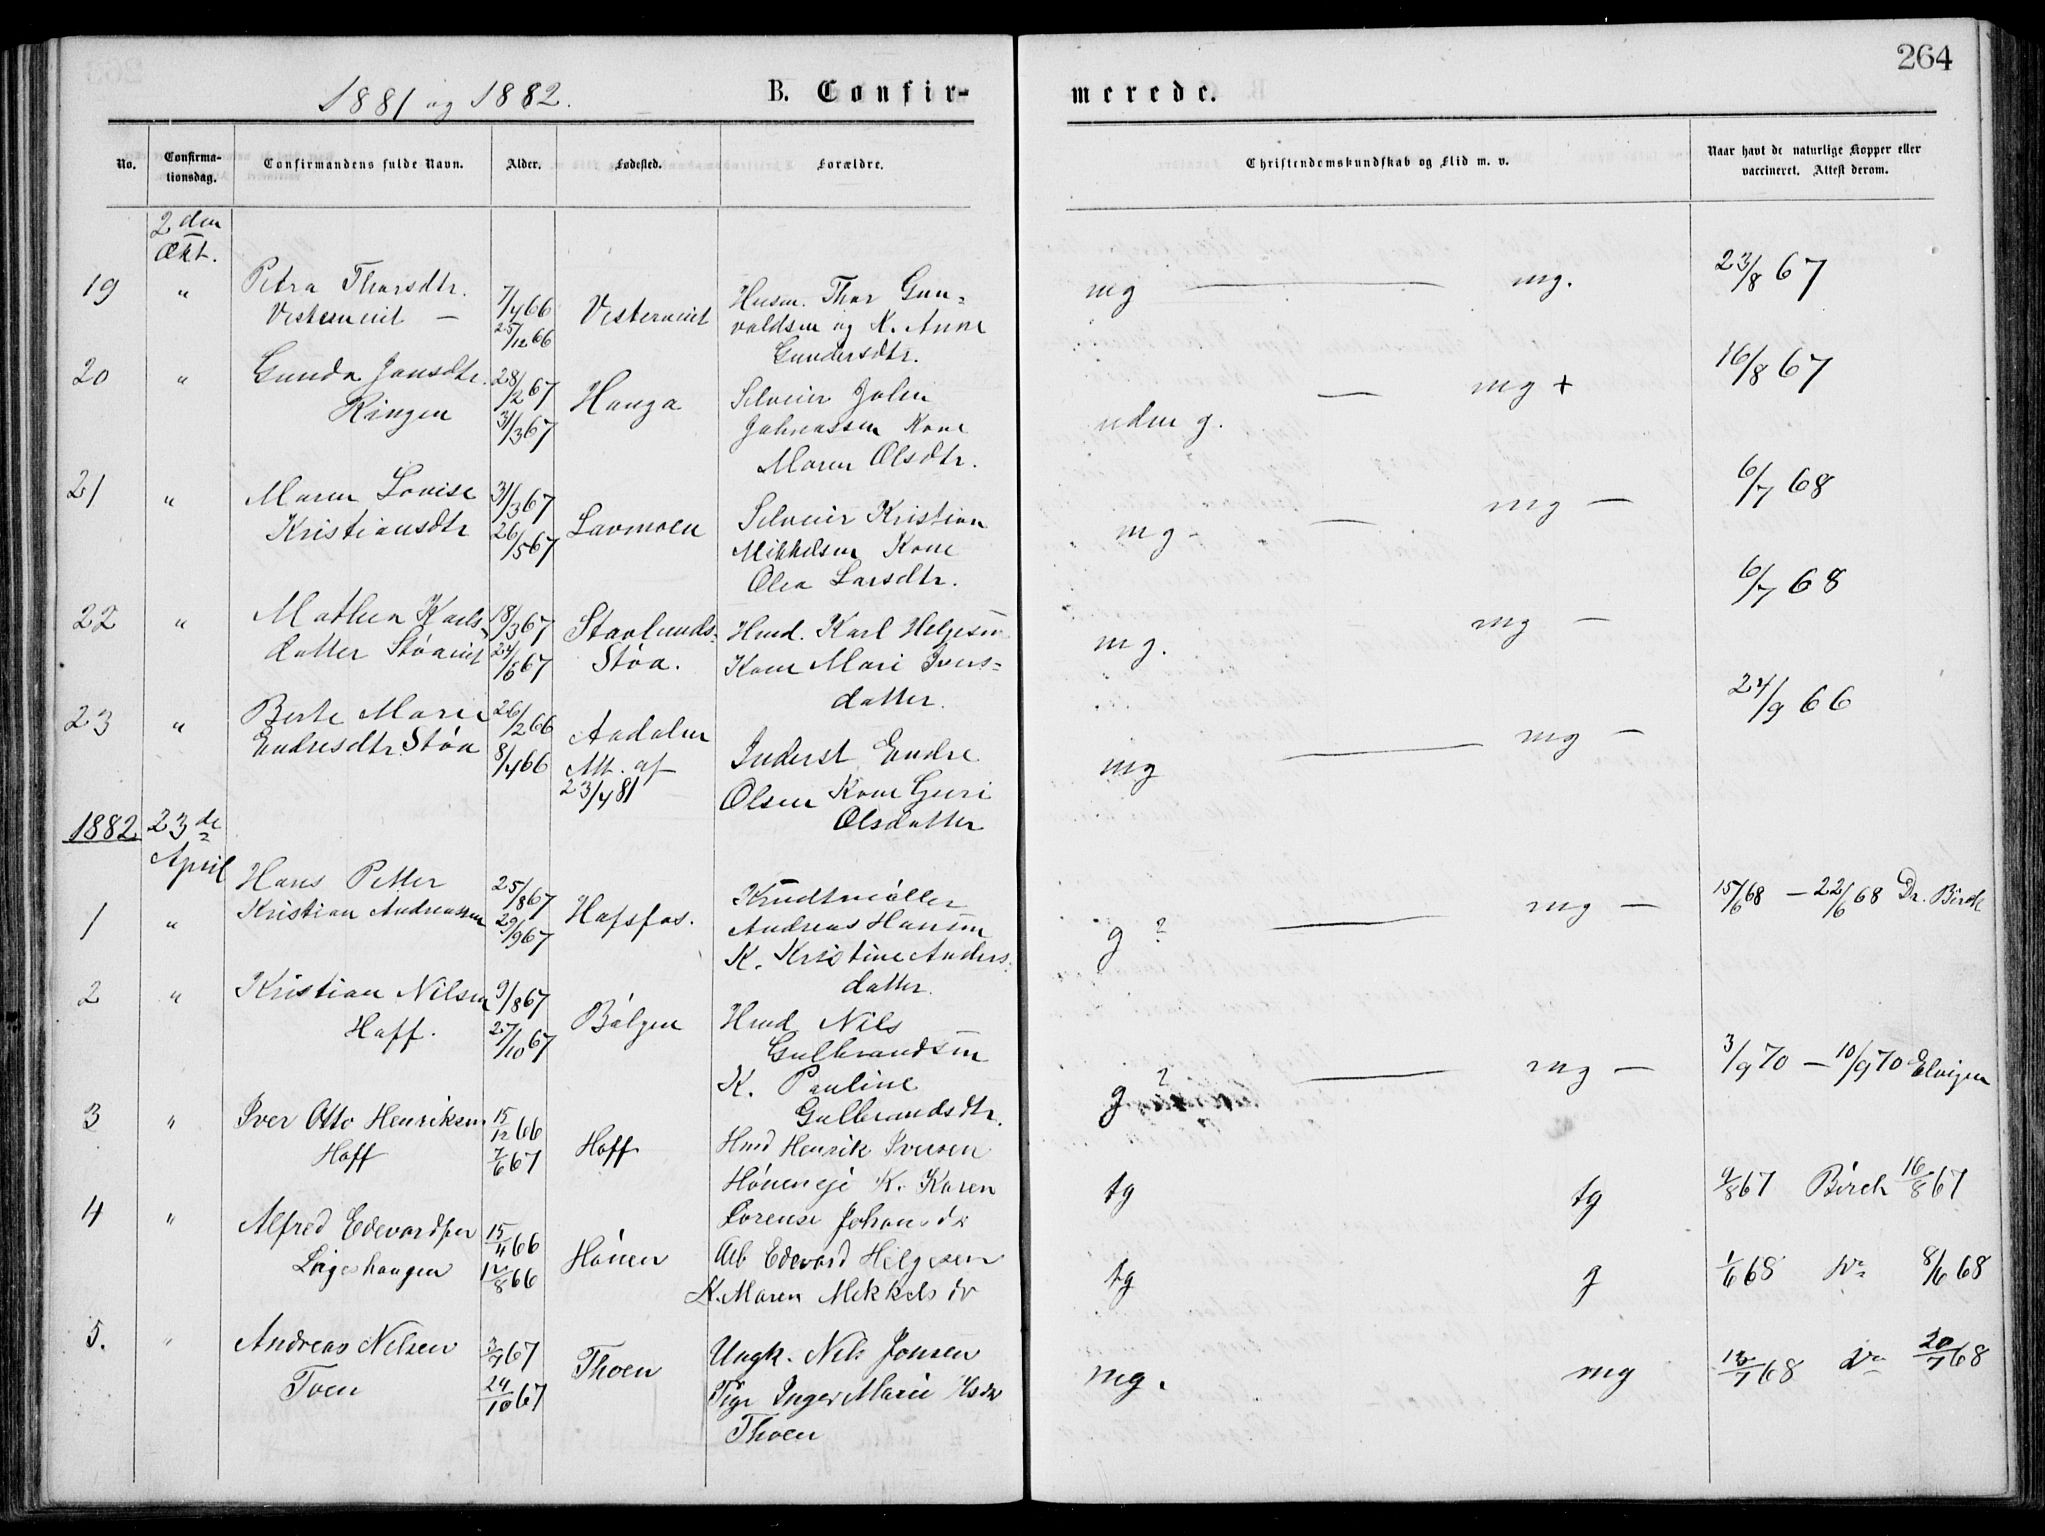 264
1881 og 1882.
B. Confir-
merede.
No.
Confirma-
tionsdag.
Confirmandens fulde Navn.
Alder.
Fødested.
Forældre.
Christendomskundskab og Flid m. v.
Naar havt de naturlige Kopper eller
vaccineret. Attest derom.
2den
Okt.
19 " Petra Thorsdtr. 7/4 66 Vesterneiet Husm. Thor Gun-
Vesterneiet — 25/12 66 valdsen og K. Anne
Gundersdtr.
mg — mg. 23/8 67
20 " Gunda Jonsdtr. 28/2 67 Honga Selveier John
Ringen 31/3 67 Kone
Maren Olsdtr.
uden g. — mg + 16/8 67
21 " Maren Lovise 31/3 67 Lavmoen Selveier Kristian
Kristiansdtr 26/5 67 Mikkelsen Kone
Olea Larsdtr.
mg - — mg — 6/7 68
22 " Mathea Karls- 18/3 67 Stavlunds- Hmd. Karl Helgesen
datter Støaeiet 24/6 67 Støa. Kone Mari Ivers-
datter.
mg. mg — 6/7 68
23 " Berte Marie 26/2 66 Aadalen Inderst Endre
Endresdtr. Støa 8/4 66 Att. af Olsen Kone Guri
23/4 81 Olsdatter
mg — mg — 24/9 66
1882 23de
April
1 " Hans Petter 25/8 67 Hofsfos. Krudtmøller
Kristian Andreassen 29/9 67 Andreas Hansen
K. Kristine Anders-
datter.
g ? — mg — 15/6 68 — 22/6 68 Dr. Birch
2 " Kristian Nilsen 9/8 67 Bølgen Hmd Nils
Hoff. 27/10 67 Gulbrandsen
K. Pauline
Gulbrandsdtr.
g ? — mg — 3/9 70 — 10/9 70 Elvigen
3 " Iver Otto Henriksen 15/12 66 Hoff Hmd Henrik Iversen
Hoff 7/6 67 Høneneje K. Karen
Lorense Johansdr
tg tg 9/8 67 Birch 16/8 67
4 " Alfred Edevardsen 15/4 66 Hønen Arb Edevard Helgesen
12/8 66 K. Maren Mekkelsdr
tg g 1/6 68 Do 8/6 68
5. " Andreas Nilsen 3/7 67 Thoen Ungk. Nils Jonsen
Toen 24/10 67 Pige Inger Marie
Thoen
mg. mg 13/7 68 Do 20/7 68